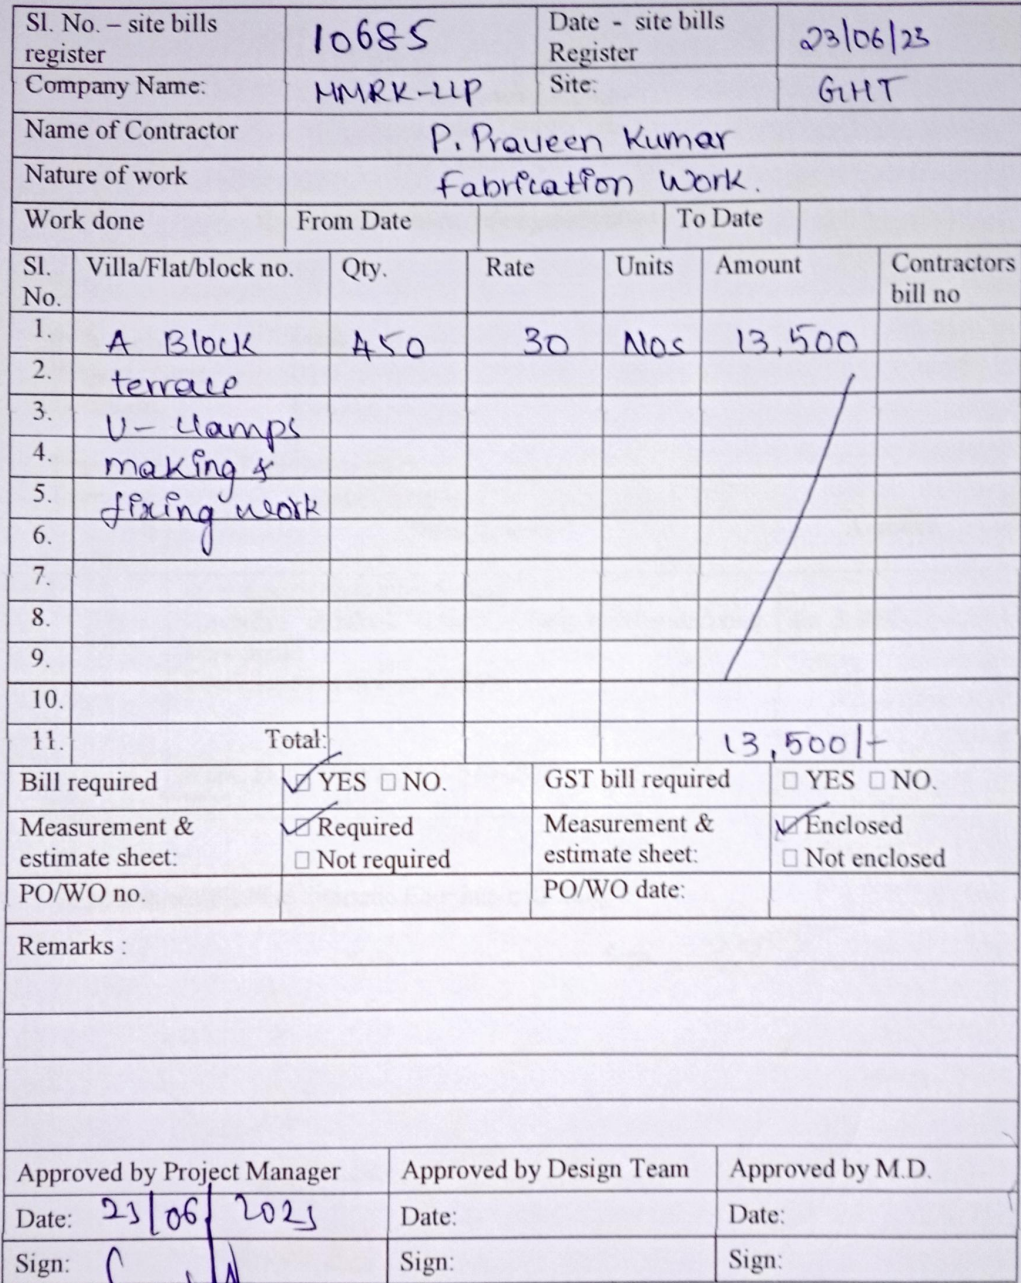 Sl. No. – site bills register 10685 Date - site bills Register 23/06/23
Company Name: MMRK-LLP Site: GHT
Name of Contractor P. Praveen Kumar
Nature of work Fabrication Work.
Work done From Date To Date
Sl. No. Villa/Flat/block no. Qty. Rate Units Amount Contractors bill no
1. A Block 450 30 Nos 13,500
2. terrace
3. U- clamps
4. making &
5. fixing work
6.
7.
8.
9.
10.
11. Total: 13,500/-
Bill required ☑ YES ☐ NO. GST bill required ☐ YES ☐ NO.
Measurement & estimate sheet: ☑ Required ☐ Not required Measurement & estimate sheet: ☑ Enclosed ☐ Not enclosed
PO/WO no. PO/WO date:
Remarks :
Approved by Project Manager Approved by Design Team Approved by M.D.
Date: 23/06/2023 Date: Date:
Sign: Sign: Sign: